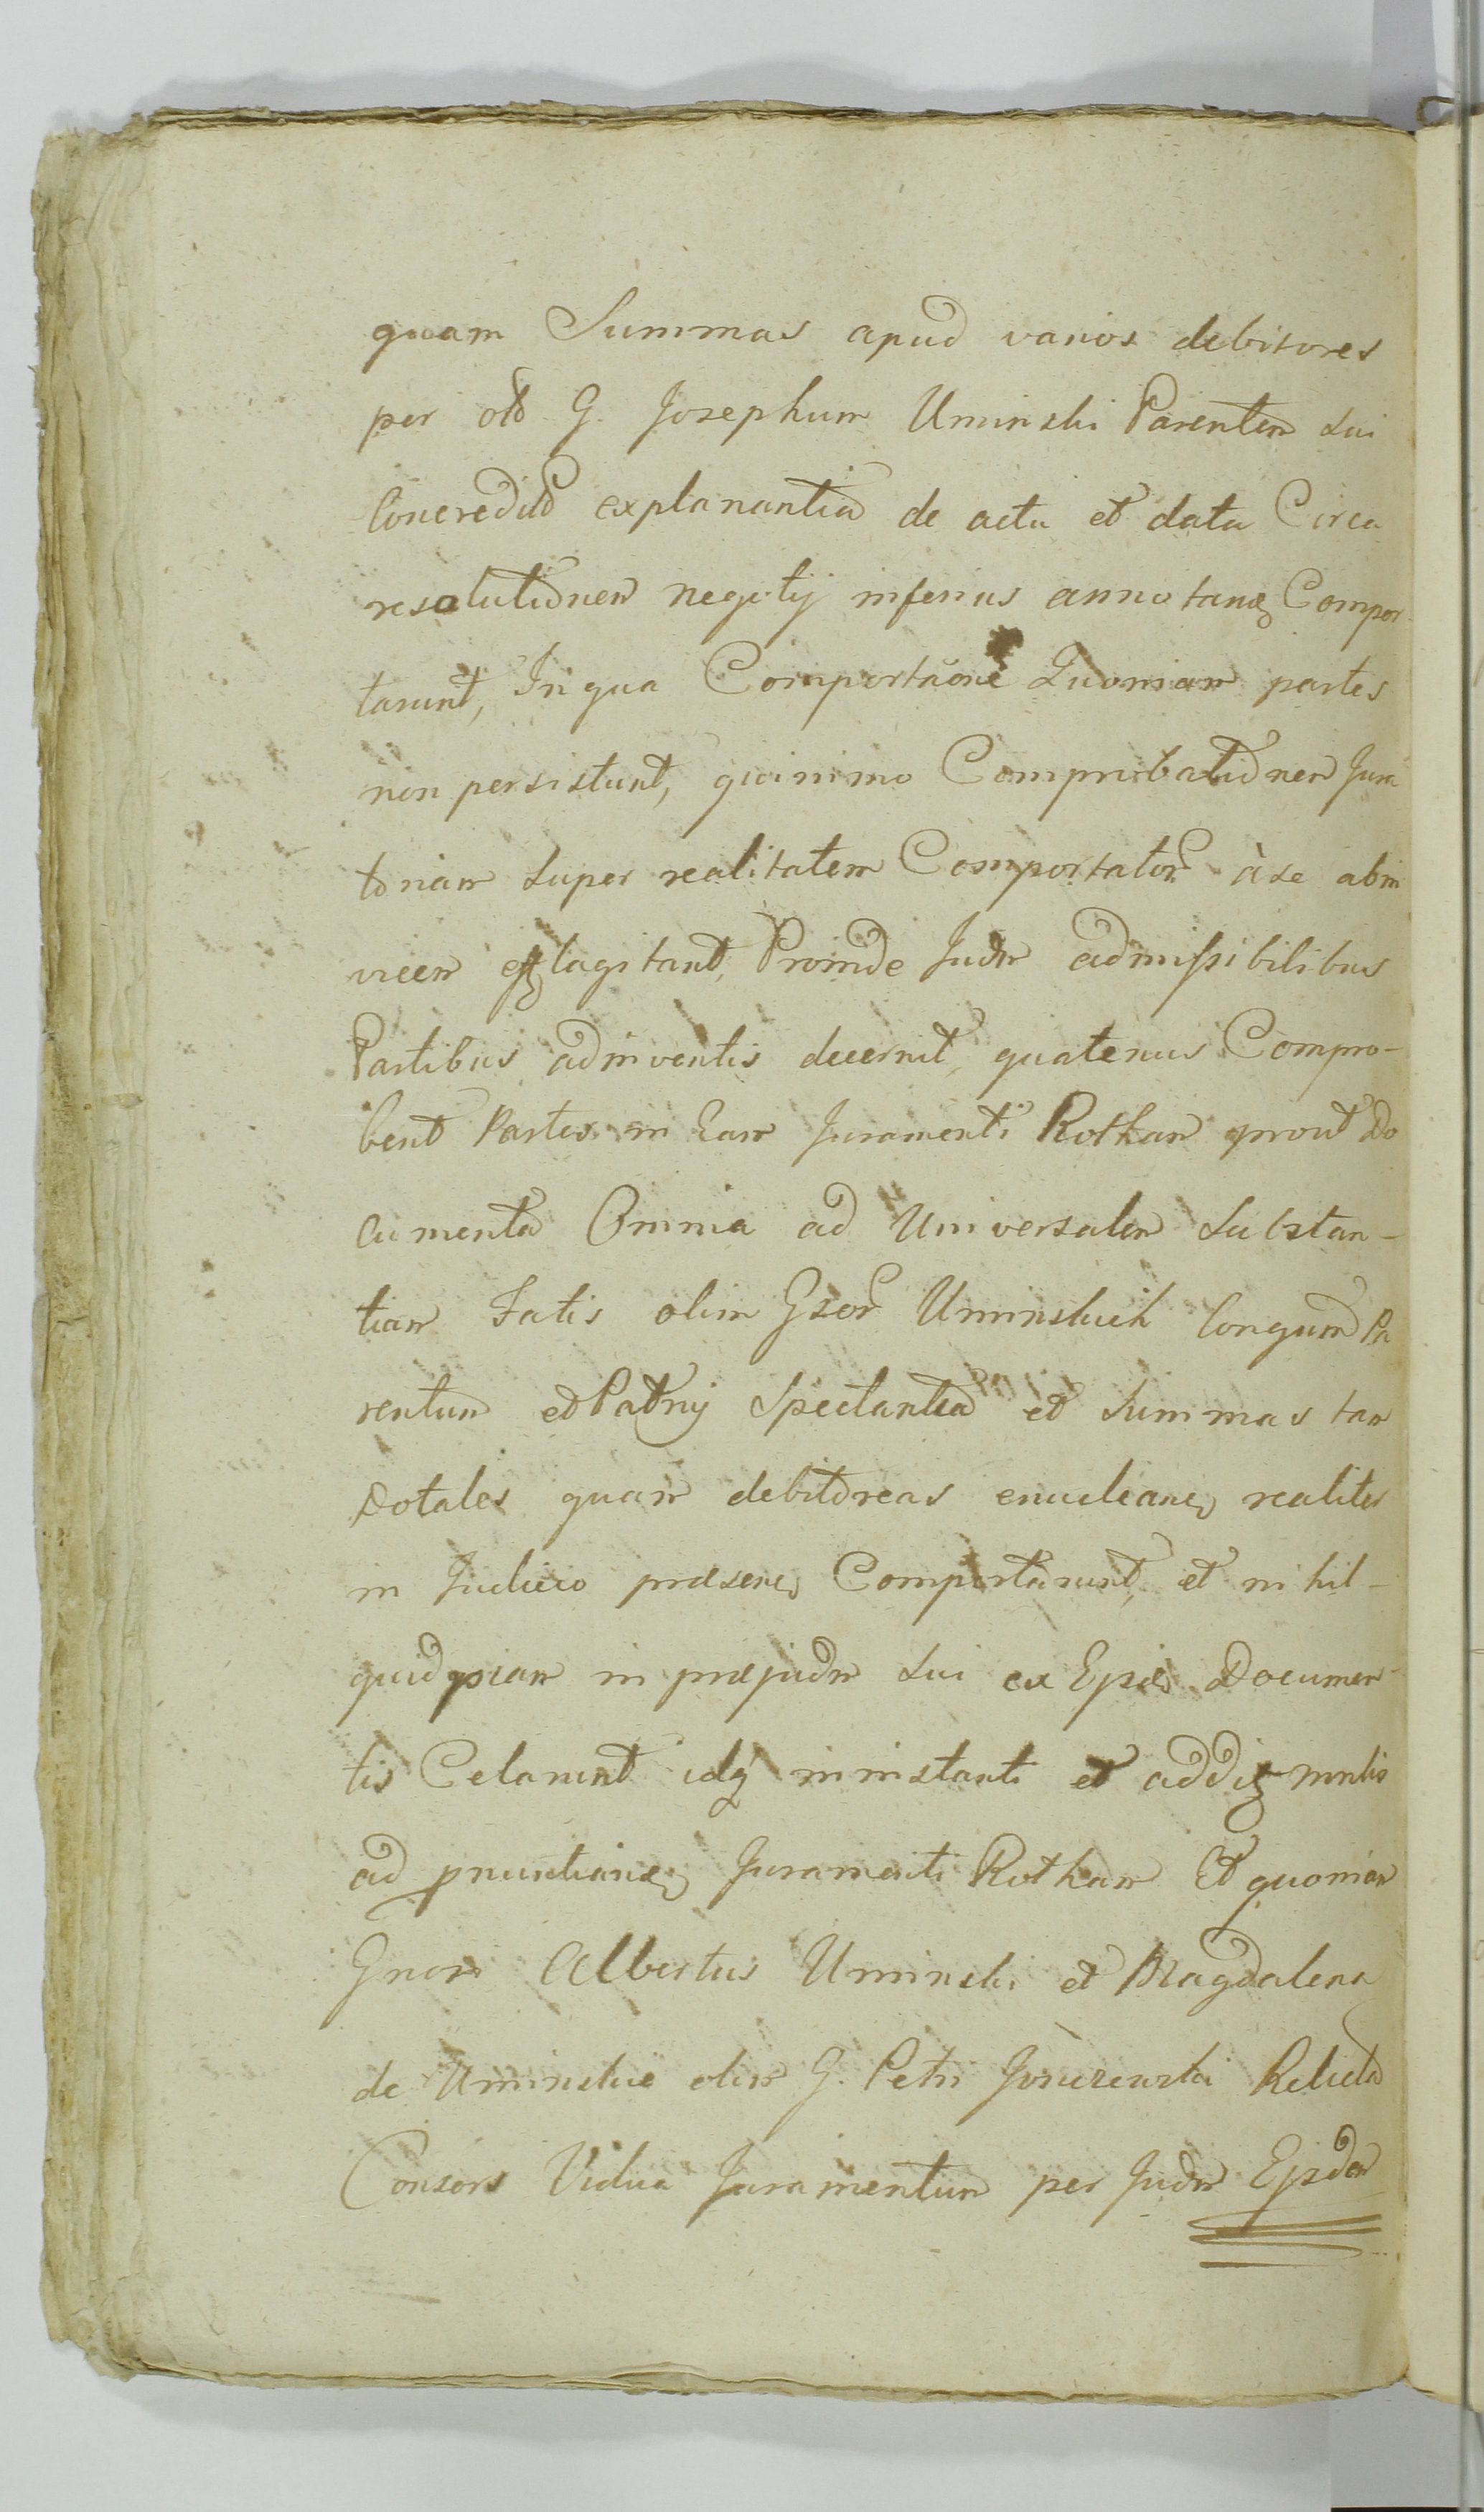 quam Summas apud varios debitores
per olb G. Josephum Uminski Parentem sui
Concredita explanantia de actu et data Circa
resolutionem negotij inferius annotanda Compor
tarunt, In qua Comportaone Quoniam partes
non persistunt, quinimo Comprobationem Jura
toriam super realitatem Comportator à se abin
vicem efflagitant, Proinde Judm admissibilibus
Partibus adinventis decernit quatenus Compro-
bent Partes in Eam Juramenti Rotham prout Do
cumenta Omnia ad Universalem substan-
tiam Fatis olim Gsor Uminskich Conjgum Pa
rentum et Patrij Spectantia et Summas tam
Dotales quam debitoreas enucleane realiter
in Judicio praesene Comportarunt, et nihil-
quidpiam in praejudm sui ex Ejsde Documen-
tis Celarunt idq in instanti et
ad pnuntianda Juramenti Rotham Et quoniam
Gnosi Albertus Uminski et Magdalena
de Uminskie olim G. Petri Relicta
Consors Vidua Juramentum per Judm Ejsdem